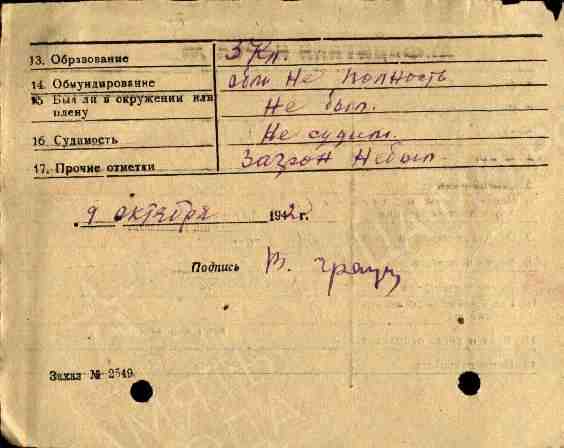 13. Образование 3 кл.
14. Обмундирование обм Не Полность
15 Был ли в окружении или
плену Не был.
16. Судимость Не судим.
17. Прочие отметки Загрон Небыл
9 октября 1942 г.
Подпись В.
Заказ № 2549